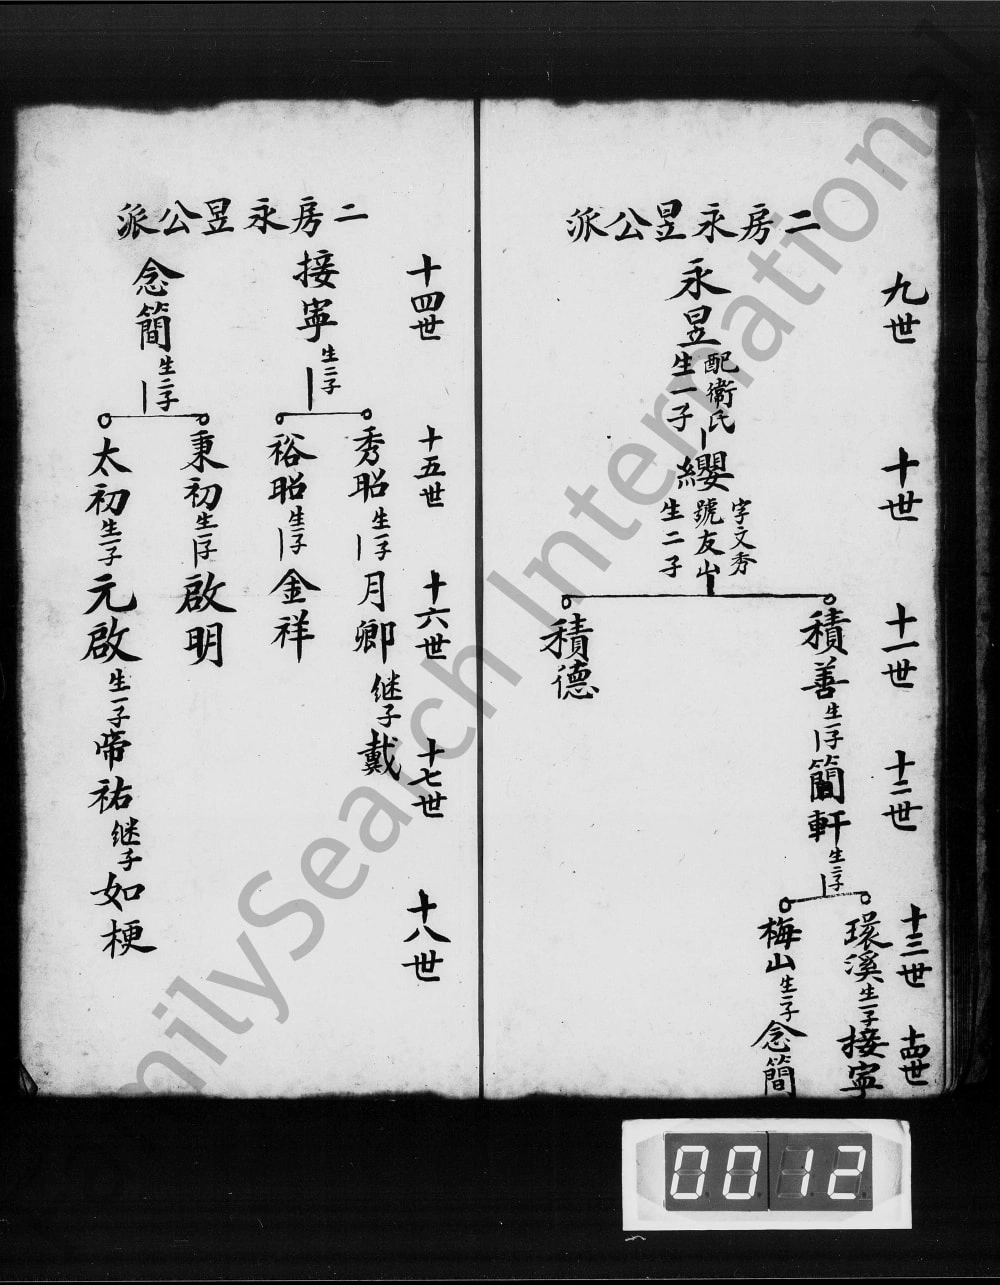 二房永昱公派
九世
永昱
配衛氏
生一子
十世
纓
字文秀
號友山
生二子
十一世
積善
生一子
積德
十二世
簡軒
生二子
十三世
環溪
生一子
梅山
生一子
十四世
接寧
念簡
二房永昱公派
十四世
接寧
生二子
念簡
生二子
十五世
秀昭
生一子
裕昭
生一子
秉初
生一子
太初
生一子
十六世
月卿
继子
金祥
啟明
元啟
生一子
十七世
戴
帝祐
继子
十八世
如梗
0012
FamilySearch International